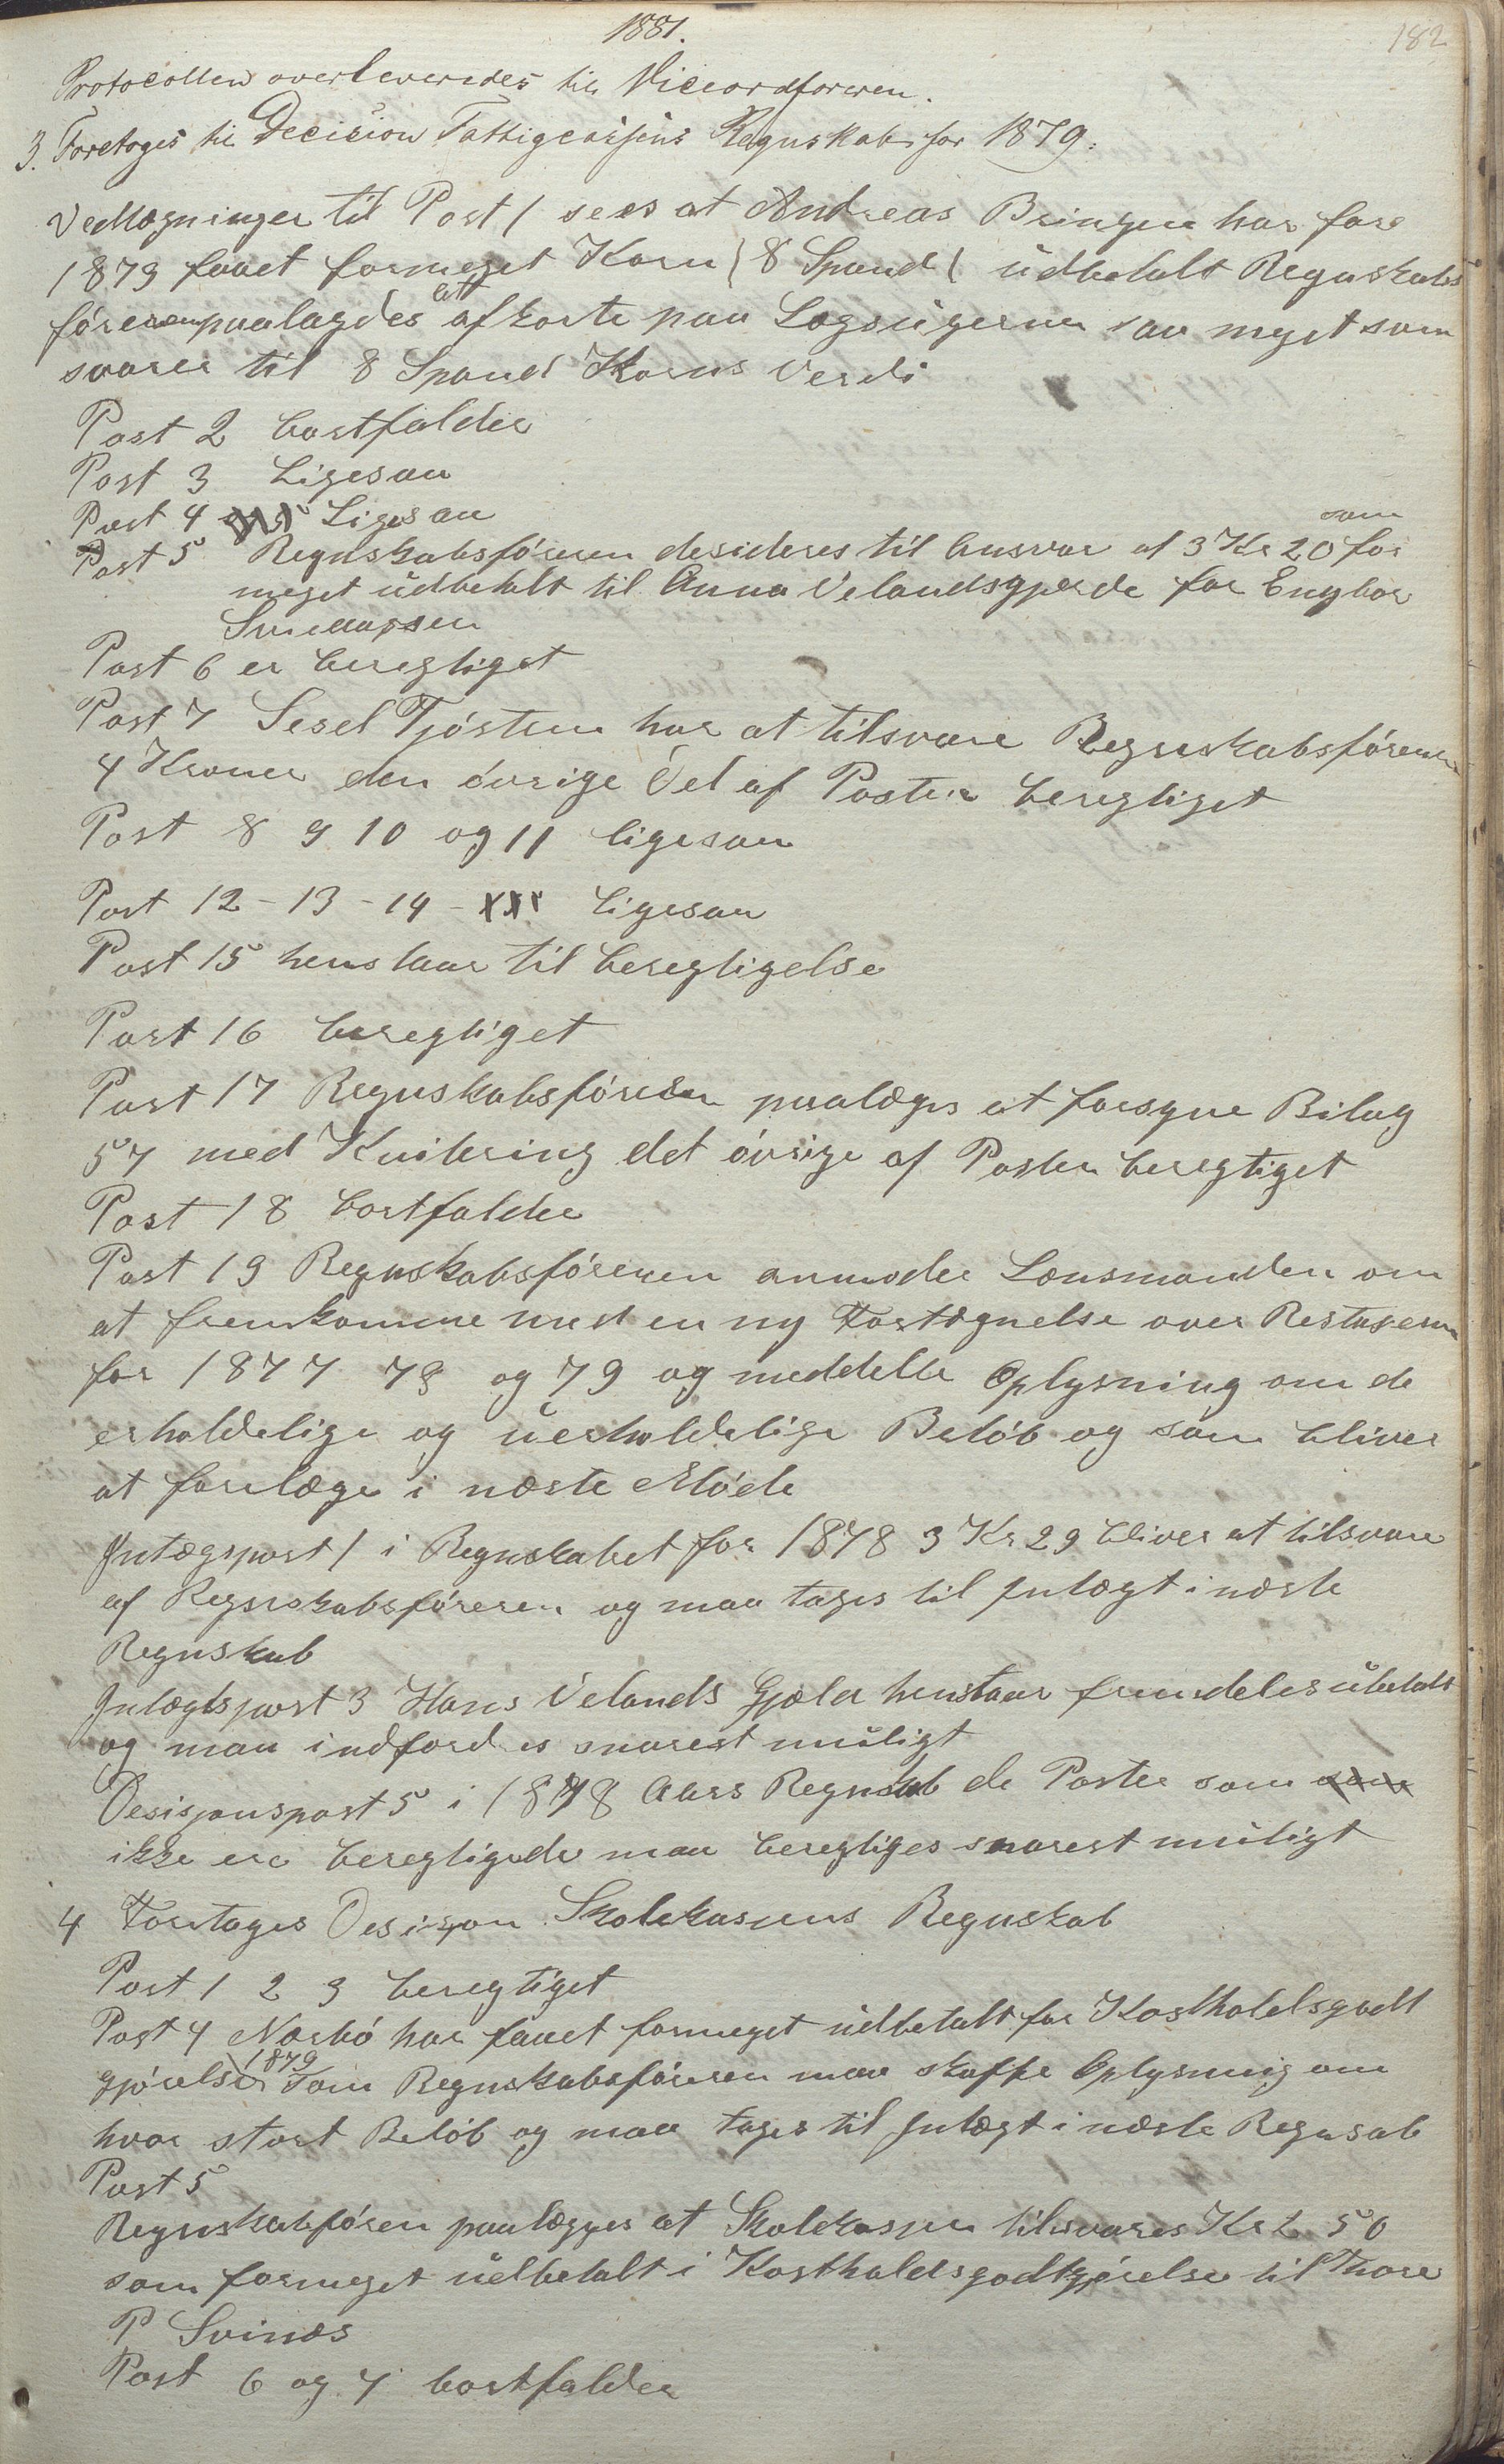 1881.
182
Protocollen overleveredes til Viceordføreren.
3. Foretoges til Decision Fattigcassens Regnskab for 1879.
Vedtægninger til Post 1 sees at Andreas Bringen har fore
1879 faaet formeget Korn ( 8 Spand ( üdbetalt Regnskabs
føreren paalagdes at afkorte paa Lægsügerne saa meget som
svarer til 8 Spand Korns Verdi
Post 2 bortfalder
Post 3 Ligesaa
Post 4 Ligesaa
Post 5 Regnskabsføreren desideres til Ansvar af 3 Kr 20 som for
meget üdbetalt til Anna Velandsgjerde for Engbor
Post 6 er beregtiget
Post 7 Sesel Tjøstem har at tilsvare Regnskabsføreren
4 Kroner den øvrige Del af Posten beregtiget
Post 8 9 10 og 11 ligesaa
Post 12 - 13 - 14 - ligesaa
Post 15 henstaar til beregtigelse
Post 16 beregtiget
Post 17 Regnskabsføreren paalæges at forsyne Bilag
57 med Kvitering det øvrige af Posten beregtiget
Post 18 bortfalder
Post 19 Regnskabsføreren anmoder Lensmanden om
at fremkomme med en ny Fortegnelse over Restasern
for 1877 78 og 79 og meddelle Oplysning om de
erholdelige og üerholdelige Beløb og som bliver
at forelæge i næste Møde
Intægspost 1 i Regnskabet for 1878 3 Kr 29 bliver at tilsvare
af Regnskabsføreren og maa tages til Intægt i næste
Regnskab
Intægtspost 3 Hans Velands Gjæld henstaar fremdeles übetalt
og maa indfordres snarest müligt
Desisjonspost 5 i 1878 Aars Regnskab de Poster som
ikke ere beregtigede maa beregtiges snarest müligt
4 Foretages Desisjon Skolekassens Regnskab
Post 1 2 3 beregtiget
Post 4 Næsbø har faaet formeget üdbetalt for Kostholdsgodt
gjørelse 1879 som Regnskabsføreren maa skaffe Oplysning om
hvor stort Beløb og maa tages til Intægt i næste Regnsab
Post 5
Regnskabføren paalægges at Skolekassen tilsvares Kr 2 50
som formeget üdbetalt i Kostholdsgodtgjørelse til Thore
P Svinæs
Post 6 og 7 bortfalder